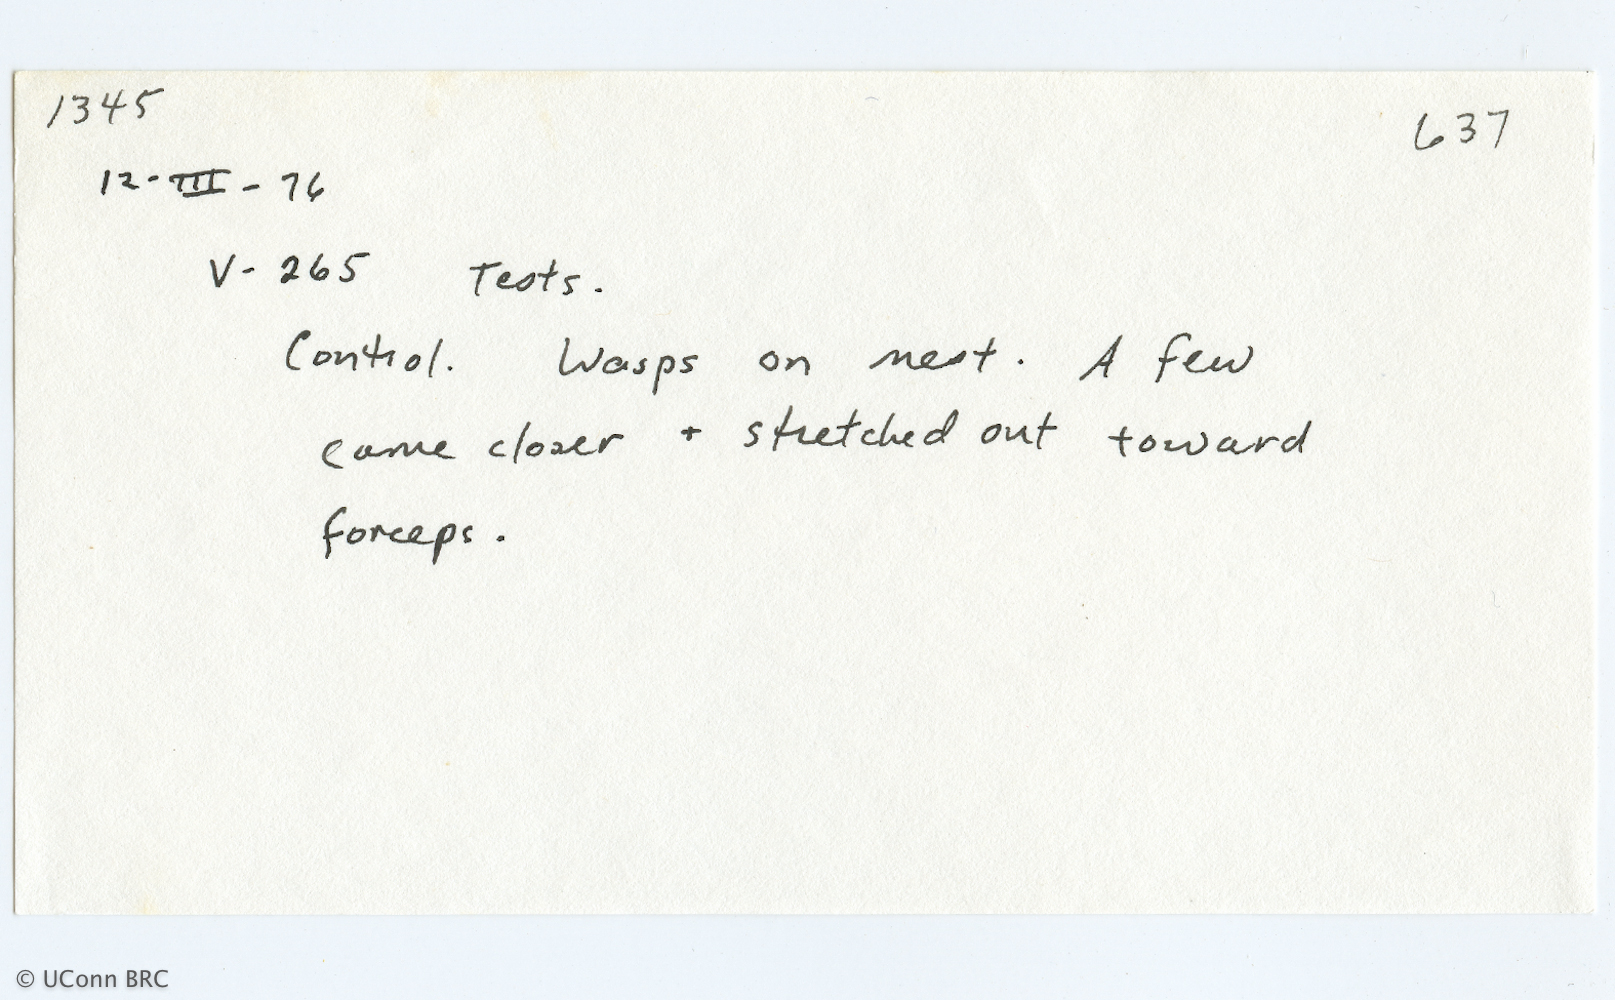 1345
637
12-III-76
V-265 Tests.
Control. Wasps on nest. A few
came closer + stretched out toward
forceps.
© UConn BRC